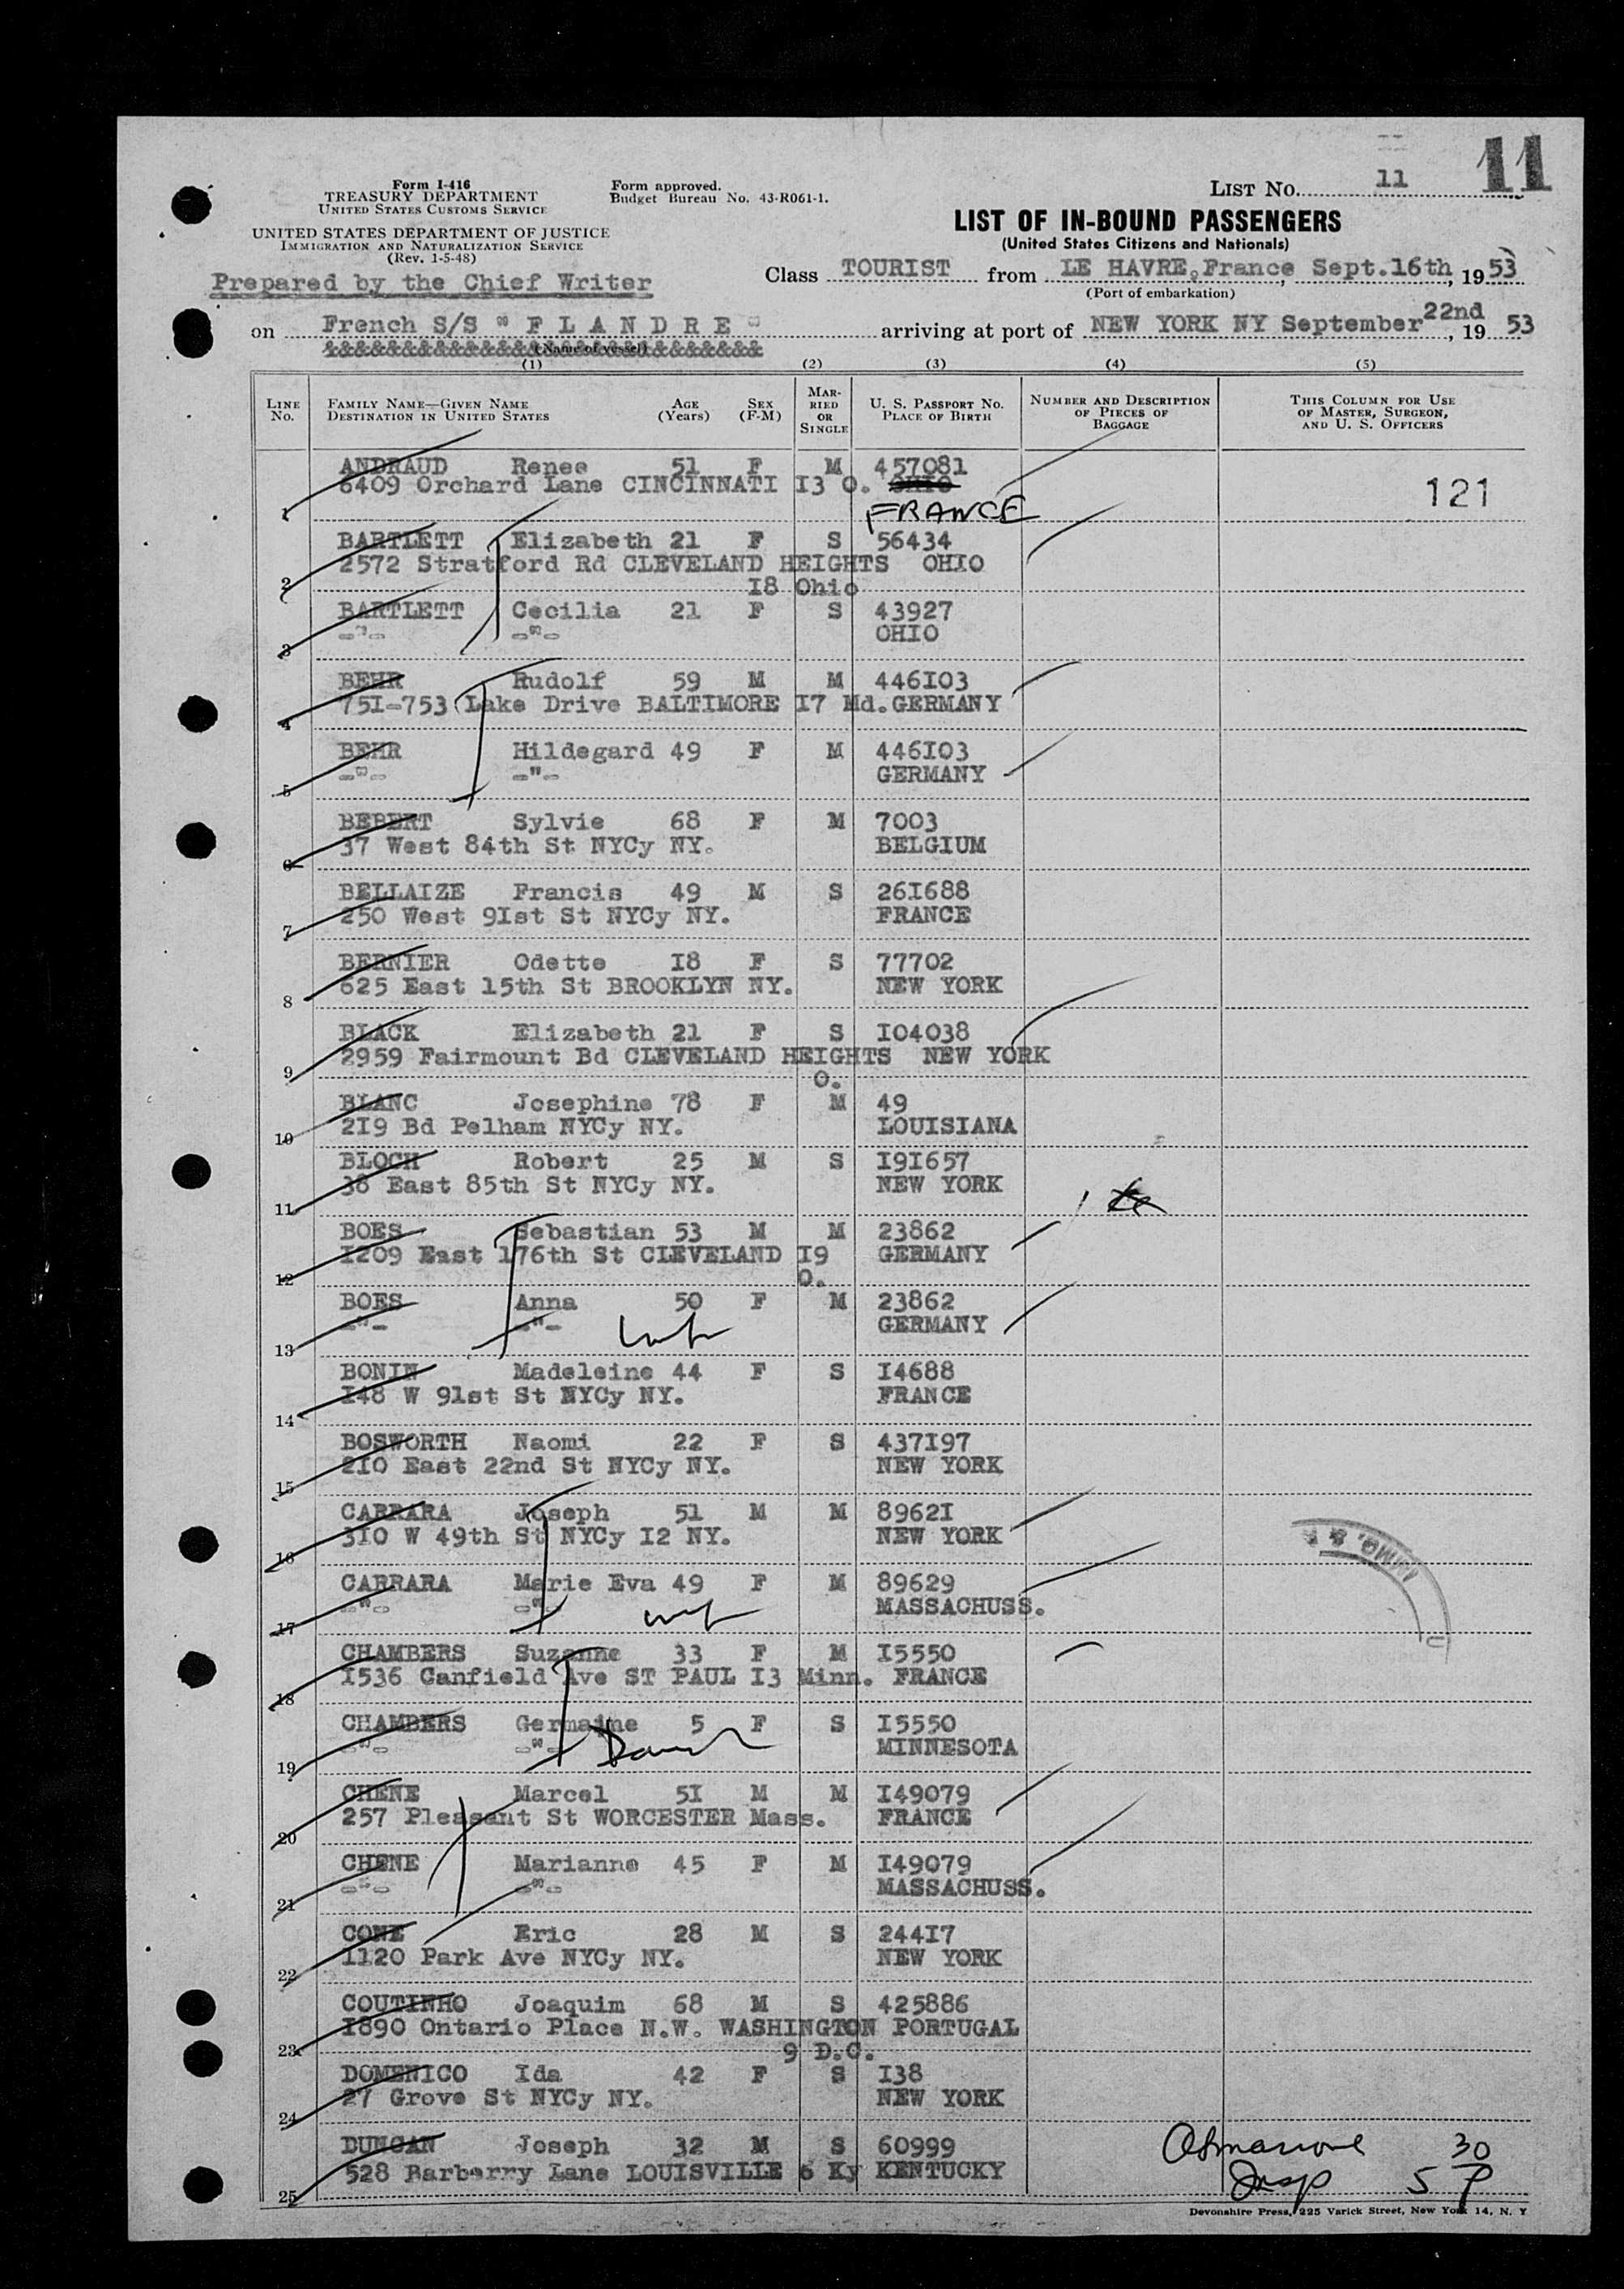 11
Form I-416
TREASURY DEPARTMENT
UNITED STATES CUSTOMS SERVICE
UNITED STATES DEPARTMENT OF JUSTICE
IMMIGRATION AND NATURALIZATION SERVICE
(Rev. 1-5-48)
Form approved.
Budget Bureau No. 43-R061-1.
LIST NO. 11
LIST OF IN-BOUND PASSENGERS
(United States Citizens and Nationals)
Prepared by the Chief Writer
Class TOURIST from LE HAVRE, France Sept.16th, 1953
(Port of embarkation)
on French S/S " F L A N D R E " arriving at port of NEW YORK NY September 22nd, 19 53
&&&&&&&&&&&&&&&&&&&&&&&&&&&&
(Name of vessel)
(1) (2) (3) (4) (5)
LINE NO.
FAMILY NAME—GIVEN NAME
DESTINATION IN UNITED STATES
AGE (Years)
SEX (F-M)
MARRIED OR SINGLE
U. S. PASSPORT NO.
PLACE OF BIRTH
NUMBER AND DESCRIPTION OF PIECES OF BAGGAGE
THIS COLUMN FOR USE OF MASTER, SURGEON, AND U. S. OFFICERS
ANDRAUD Renee 51 F M 457081
6409 Orchard Lane CINCINNATI I3 O. OHIO
121
1 FRANCE
BARTLETT Elizabeth 21 F S 56434
2572 Stratford Rd CLEVELAND HEIGHTS OHIO
2 I8 Ohio
BARTLETT Cecilia 21 F S 43927
-"- -"- OHIO
3
BEHR Rudolf 59 M M 446I03
75I-753 Lake Drive BALTIMORE I7 Md. GERMANY
4
BEHR Hildegard 49 F M 446I03
-"- -"- GERMANY
5
BEBERT Sylvie 68 F M 7003
37 West 84th St NYCy NY. BELGIUM
6
BELLAIZE Francis 49 M S 26I688
250 West 9Ist St NYCy NY. FRANCE
7
BERNIER Odette I8 F S 77702
625 East 15th St BROOKLYN NY. NEW YORK
8
BLACK Elizabeth 21 F S I04038
2959 Fairmount Bd CLEVELAND HEIGHTS NEW YORK
9 O.
BLANC Josephine 78 F M 49
2I9 Bd Pelham NYCy NY. LOUISIANA
10
BLOCH Robert 25 M S I9I657
38 East 85th St NYCy NY. NEW YORK
11
BOES Sebastian 53 M M 23862
I209 East 176th St CLEVELAND I9 GERMANY
12 O.
BOES Anna 50 F M 23862
-"- -"- GERMANY
13
BONIN Madeleine 44 F S I4688
I48 W 91st St NYCy NY. FRANCE
14
BOSWORTH Naomi 22 F S 437I97
2IO East 22nd St NYCy NY. NEW YORK
15
CARRARA Joseph 51 M M 8962I
3IO W 49th St NYCy I2 NY. NEW YORK
16
CARRARA Marie Eva 49 F M 89629
-"- -"- wf MASSACHUSS.
17
CHAMBERS Suzanne 33 F M I5550
I536 Canfield Ave ST PAUL I3 Minn. FRANCE
18
CHAMBERS Germaine 5 F S I5550
-"- -"- MINNESOTA
19
CHENE Marcel 5I M M I49079
257 Pleasant St WORCESTER Mass. FRANCE
20
CHENE Marianne 45 F M I49079
-"- -"- MASSACHUSS.
21
CONE Eric 28 M S 244I7
1120 Park Ave NYCy NY. NEW YORK
22
COUTINHO Joaquim 68 M S 425886
I890 Ontario Place N.W. WASHINGTON PORTUGAL
23 9 D.C.
DOMENICO Ida 42 F S I38
27 Grove St NYCy NY. NEW YORK
24
DUNCAN Joseph 32 M S 60999
528 Barberry Lane LOUISVILLE 6 Ky KENTUCKY
25
Insp
Devonshire Press, 225 Varick Street, New York 14, N. Y